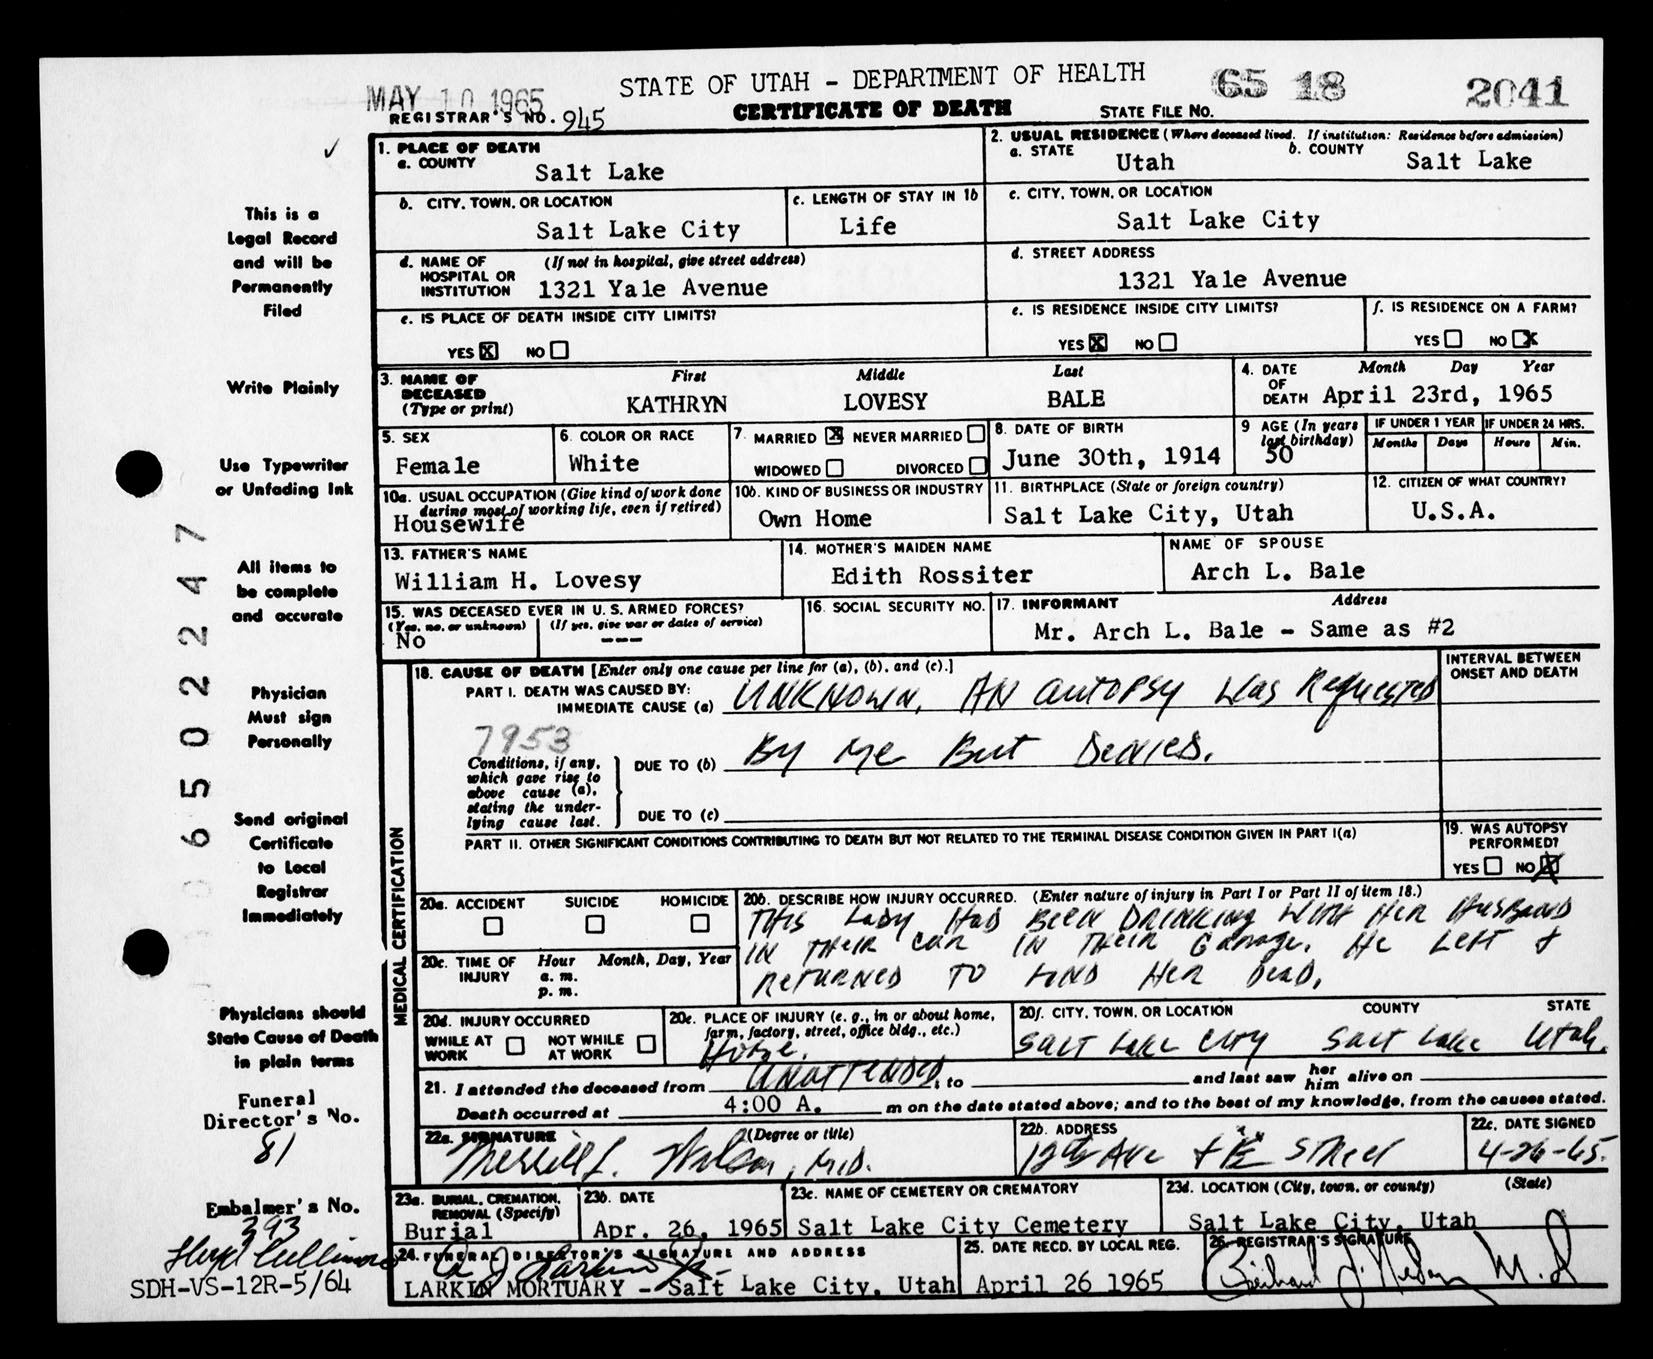 STATE OF UTAH - DEPARTMENT OF HEALTH
65 18 2041
MAY 10 1965
CERTIFICATE OF DEATH
REGISTRAR'S NO. 945
STATE FILE NO.
✓
This is a
Legal Record
and will be
Permanently
Filed
Write Plainly
Use Typewriter
or Unfading Ink
All items to
be complete
and accurate
Physician
Must sign
Personally
Send original
Certificate
to Local
Registrar
Immediately
Physicians should
State Cause of Death
in plain terms
Funeral
Director's No.
81
Embalmer's No.
393
SDH-VS-12R-5/64
0 6 5 0 2 2 4 7
1. PLACE OF DEATH
a. COUNTY
Salt Lake
2. USUAL RESIDENCE (Where deceased lived. If institution: Residence before admission)
a. STATE Utah b. COUNTY Salt Lake
b. CITY, TOWN, OR LOCATION
Salt Lake City
c. LENGTH OF STAY IN 1b
Life
c. CITY, TOWN, OR LOCATION
Salt Lake City
d. NAME OF (If not in hospital, give street address)
HOSPITAL OR
INSTITUTION 1321 Yale Avenue
d. STREET ADDRESS
1321 Yale Avenue
e. IS PLACE OF DEATH INSIDE CITY LIMITS?
YES X NO
e. IS RESIDENCE INSIDE CITY LIMITS?
YES X NO
f. IS RESIDENCE ON A FARM?
YES NO X
3. NAME OF
DECEASED
(Type or print)
First Middle Last
KATHRYN LOVESY BALE
4. DATE
OF
DEATH
Month Day Year
April 23rd, 1965
5. SEX
Female
6. COLOR OR RACE
White
7. MARRIED X NEVER MARRIED
WIDOWED DIVORCED
8. DATE OF BIRTH
June 30th, 1914
9 AGE (In years
last birthday)
50
IF UNDER 1 YEAR
Months Days
IF UNDER 24 HRS.
Hours Min.
10a. USUAL OCCUPATION (Give kind of work done
during most of working life, even if retired)
Housewife
10b. KIND OF BUSINESS OR INDUSTRY
Own Home
11. BIRTHPLACE (State or foreign country)
Salt Lake City, Utah
12. CITIZEN OF WHAT COUNTRY?
U.S.A.
13. FATHER'S NAME
William H. Lovesy
14. MOTHER'S MAIDEN NAME
Edith Rossiter
NAME OF SPOUSE
Arch L. Bale
15. WAS DECEASED EVER IN U. S. ARMED FORCES?
(Yes, no, or unknown) (If yes, give war or dates of service)
No ---
16. SOCIAL SECURITY NO.
17. INFORMANT Address
Mr. Arch L. Bale - Same as #2
MEDICAL CERTIFICATION
18. CAUSE OF DEATH [Enter only one cause per line for (a), (b), and (c).]
INTERVAL BETWEEN
ONSET AND DEATH
PART I. DEATH WAS CAUSED BY:
IMMEDIATE CAUSE (a) UNKNOWN, AN AUTOPSY WAS REQUESTED
7953
Conditions, if any,
which gave rise to
above cause (a),
stating the under-
lying cause last.
DUE TO (b) BY ME BUT DENIED.
DUE TO (c)
PART II. OTHER SIGNIFICANT CONDITIONS CONTRIBUTING TO DEATH BUT NOT RELATED TO THE TERMINAL DISEASE CONDITION GIVEN IN PART I(a)
19. WAS AUTOPSY
PERFORMED?
YES NO X
20a. ACCIDENT SUICIDE HOMICIDE
20b. DESCRIBE HOW INJURY OCCURRED. (Enter nature of injury in Part I or Part II of item 18.)
THIS LADY HAD BEEN DRINKING WITH HER HUSBAND
IN THEIR CAR IN THEIR GARAGE. HE LEFT &
RETURNED TO FIND HER DEAD.
20c. TIME OF Hour Month, Day, Year
INJURY a. m.
p. m.
20d. INJURY OCCURRED
WHILE AT
WORK
NOT WHILE
AT WORK
20e. PLACE OF INJURY (e. g., in or about home,
farm, factory, street, office bldg., etc.)
Home.
20f. CITY, TOWN, OR LOCATION COUNTY STATE
SALT LAKE CITY SALT LAKE Utah.
21. I attended the deceased from UNATTENDED, to and last saw her
him alive on
Death occurred at 4:00 A. m on the date stated above; and to the best of my knowledge, from the causes stated.
22a. SIGNATURE (Degree or title)
Merrill L. Wilson, M.D.
22b. ADDRESS
12th Ave + E STREET
22c. DATE SIGNED
4-26-65.
23a. BURIAL, CREMATION,
REMOVAL (Specify)
Burial
23b. DATE
Apr. 26, 1965
23c. NAME OF CEMETERY OR CREMATORY
Salt Lake City Cemetery
23d. LOCATION (City, town, or county) (State)
Salt Lake City, Utah
24. FUNERAL DIRECTOR'S SIGNATURE AND ADDRESS
LARKIN MORTUARY - Salt Lake City, Utah
25. DATE RECD. BY LOCAL REG.
April 26 1965
26. REGISTRAR'S SIGNATURE
M.D